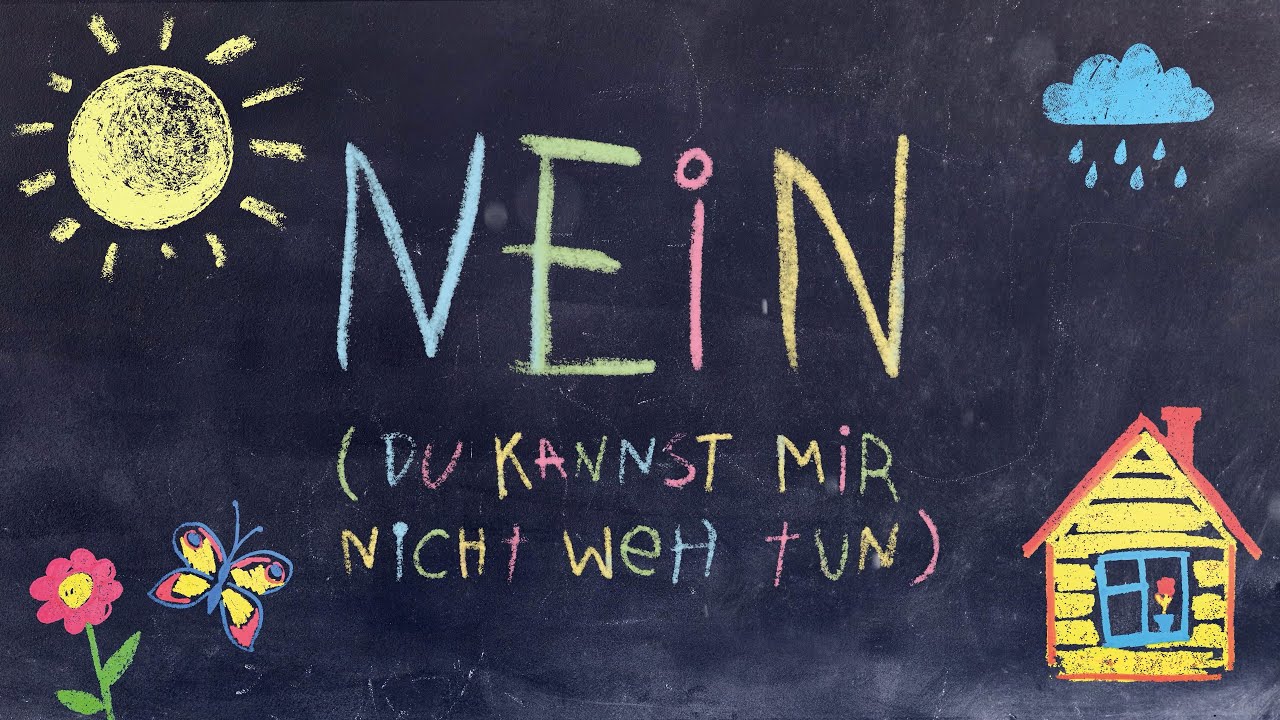 NEiN
(DU KANNST MiR
NiCHt WeH tUN)